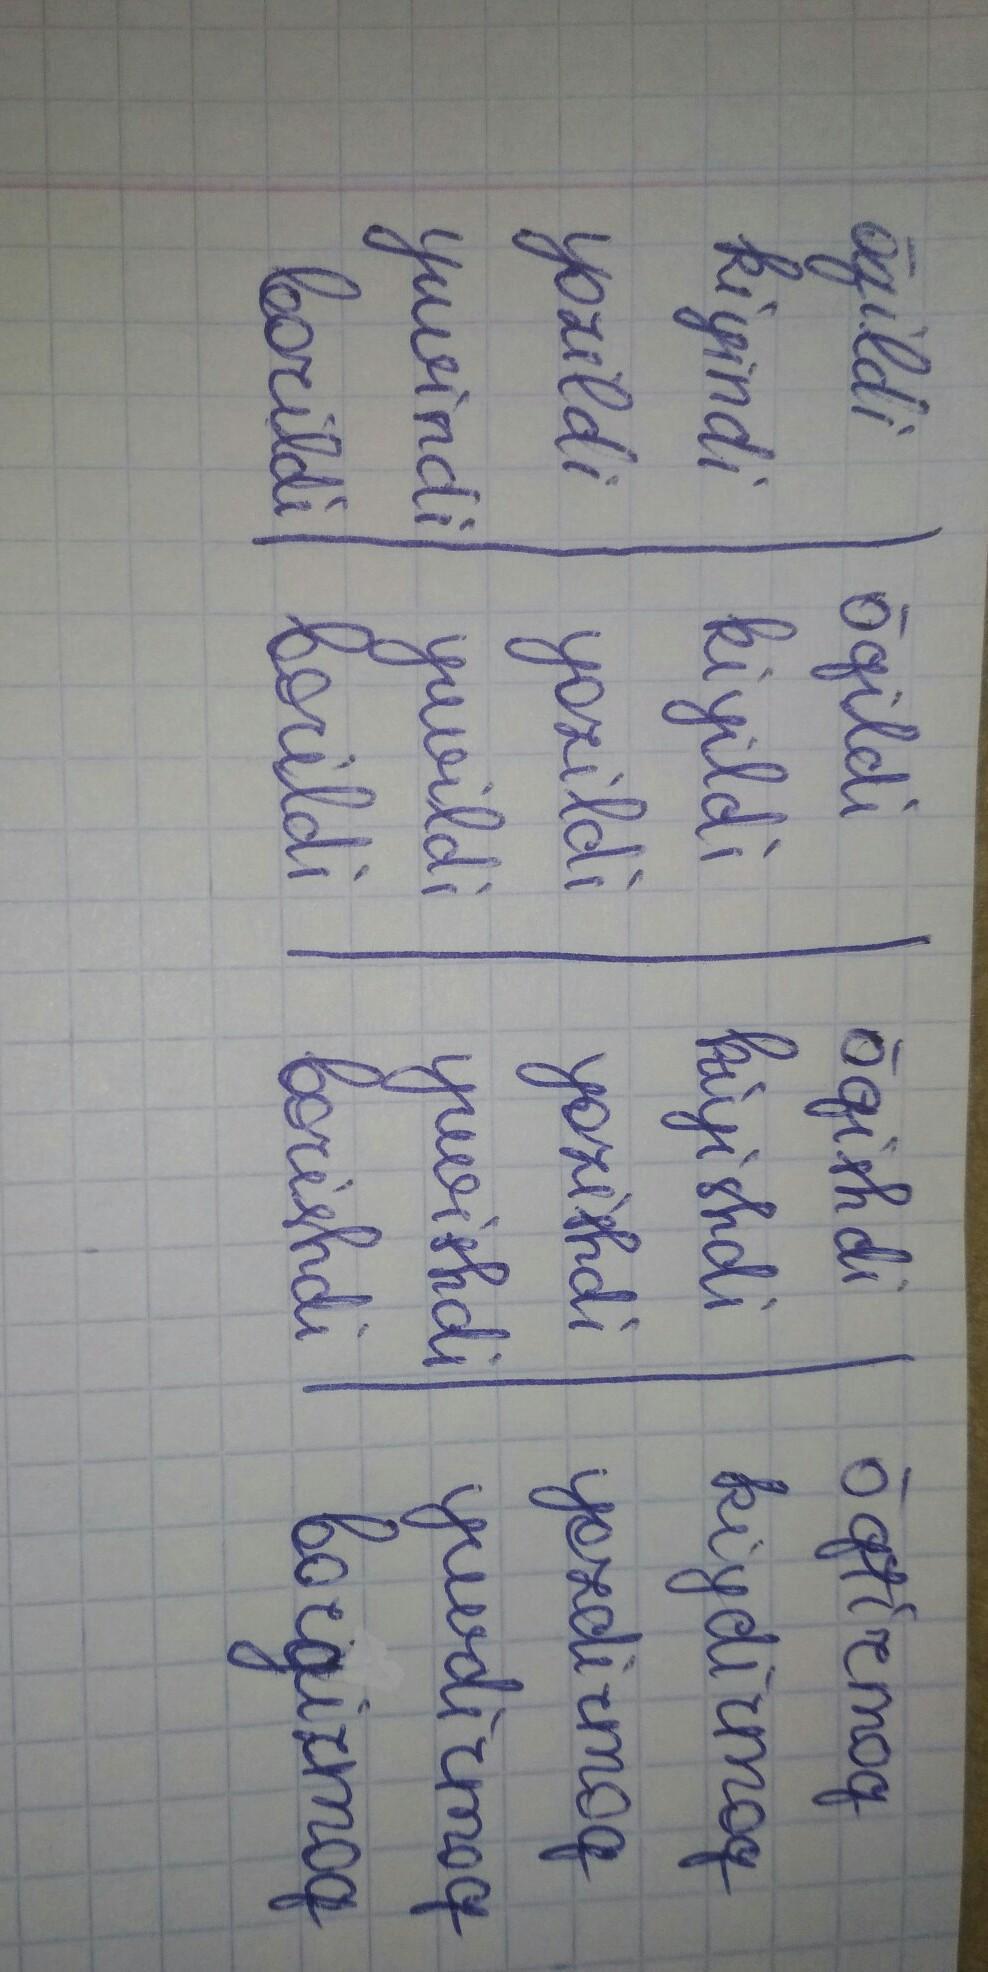 ōqildi | ōqildi | ōqishdi | ōqtirmoq
kiyindi | kiyildi | kiyishdi | kiydirmoq
yozildi | yozildi | yozishdi | yozdirmoq
yuvindi | yuvildi | yuvishdi | yuvdirmoq
borildi | borildi | borishdi | borgizmoq